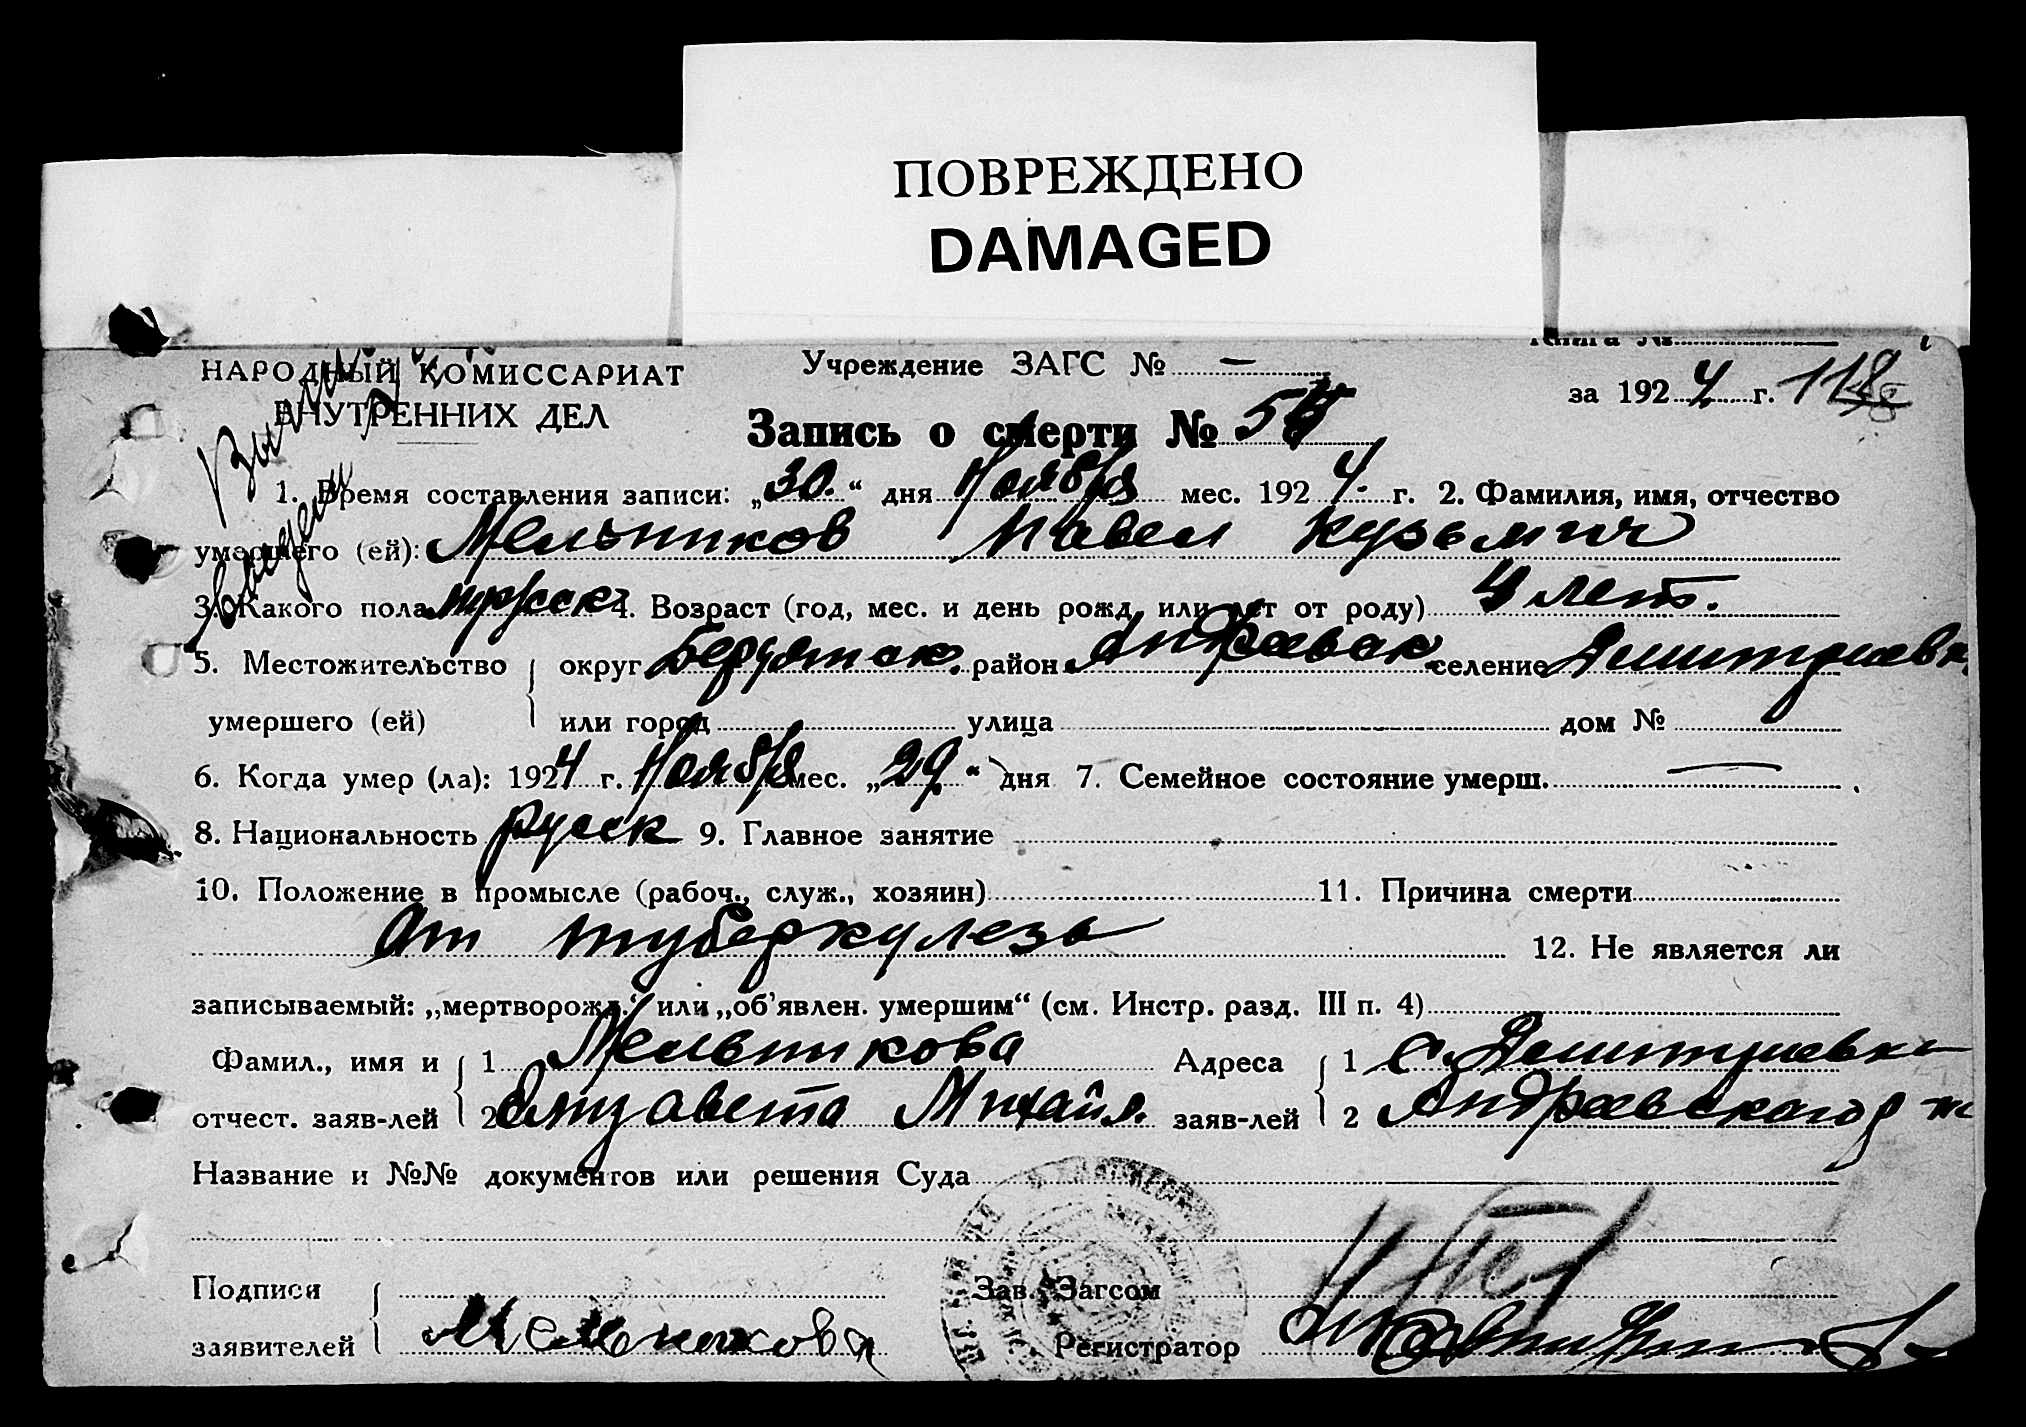 ПОВРЕЖДЕНО
DAMAGED
НАРОДНЫЙ КОМИССАРИАТ
ВНУТРЕННИХ ДЕЛ
Учреждение ЗАГС № —
Книга №
за 1924 г. 118
Запись о смерти №
1. Время составления записи: „30.“ дня Ноября мес. 1924. г. 2. Фамилия, имя, отчество
умершего (ей): Мельников Павел Кузьмич
3. Какого пола мужск 4. Возраст (год, мес. и день рожд. или лет от роду) 4 лет.
5. Местожительство округ Бердянск. район Андреевск селение Дмитриевк
умершего (ей) или город улица дом №
6. Когда умер (ла): 1924 г. Ноября мес. „29.“ дня 7. Семейное состояние умерш. —
8. Национальность русск 9. Главное занятие
10. Положение в промысле (рабоч., служ., хозяин) 11. Причина смерти
От туберкулезь 12. Не является ли
записываемый: „мертворожд.“ или „об’явлен. умершим“ (см. Инстр. разд. III п. 4)
Фамил., имя и 1 Мельникова Адреса 1 с. Дмитриевка
отчест. заяв-лей 2 Елизавета Михайл. заяв-лей 2 Андреевского р
Название и №№ документов или решения Суда
Подписи Зав. Загсом
заявителей Мельникова Регистратор